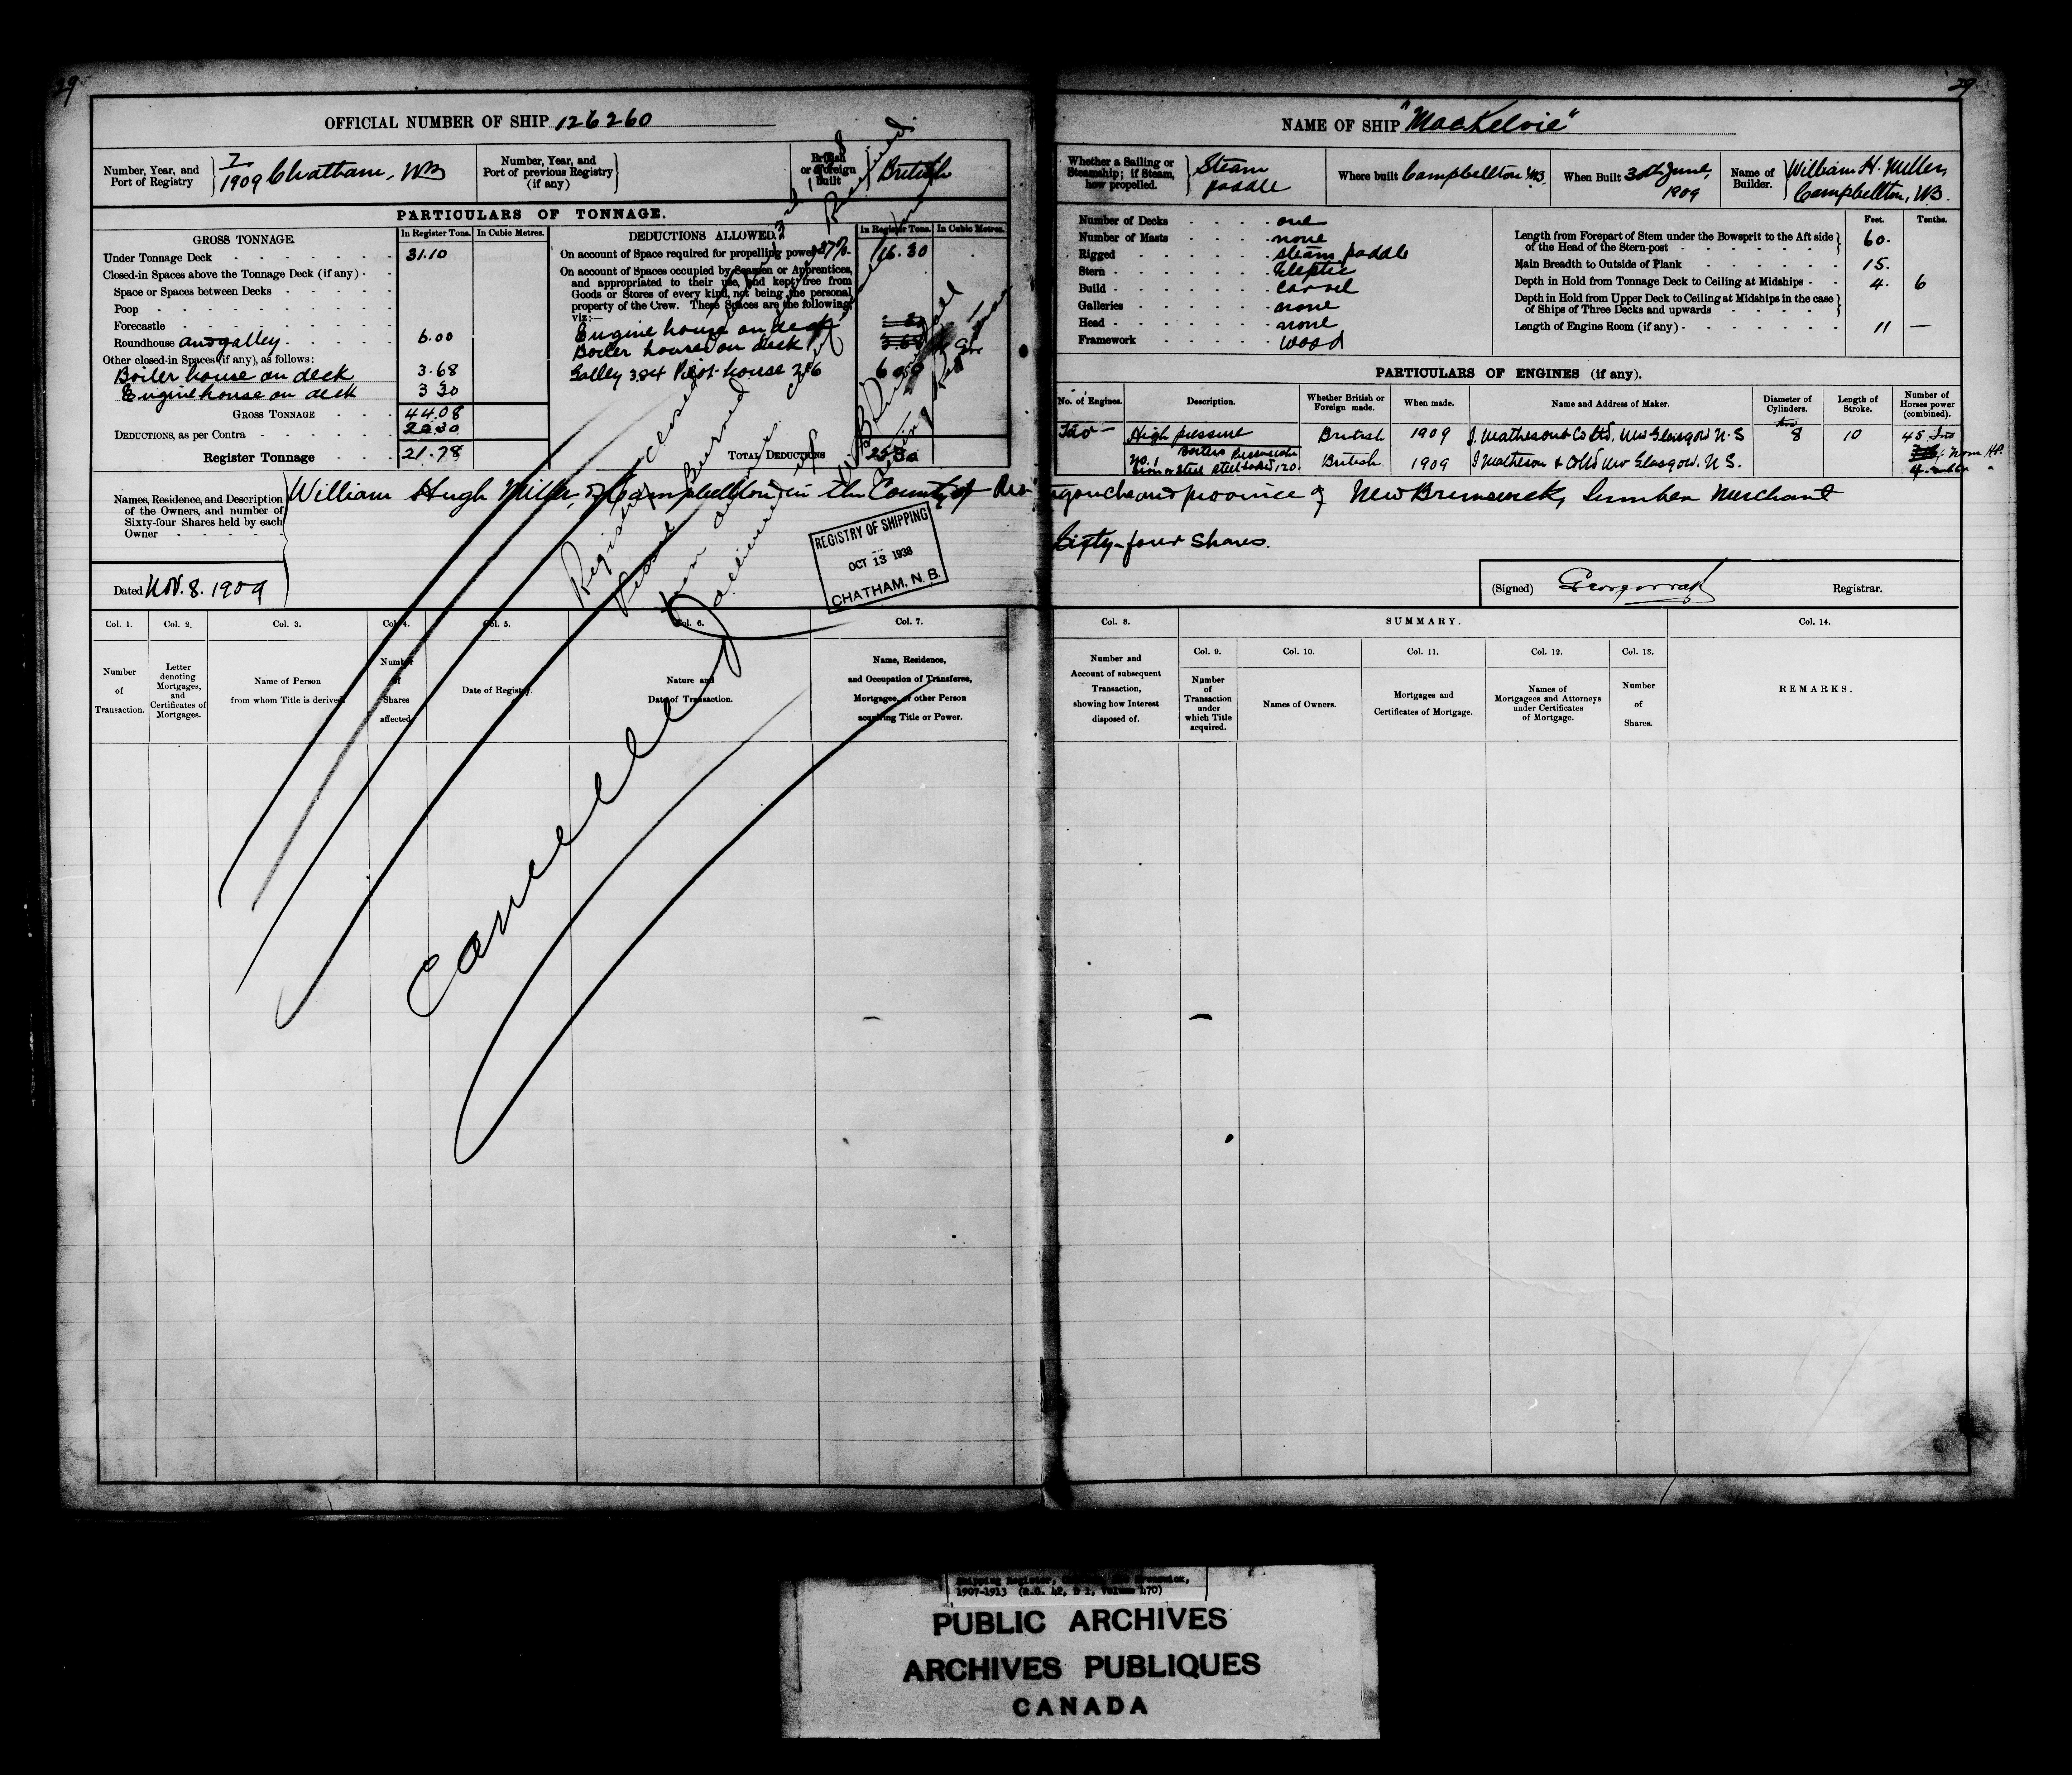 29
OFFICIAL NUMBER OF SHIP 126260
Number, Year, and
Port of Registry
7
1909 Chatham, NB
Number, Year, and
Port of previous Registry
(if any)
British
or Foreign
Built
British
PARTICULARS OF TONNAGE.
GROSS TONNAGE.
In Register Tons.
In Cubic Metres.
Under Tonnage Deck 31.10
Closed-in Spaces above the Tonnage Deck (if any)
Space or Spaces between Decks
Poop
Forecastle
Roundhouse and galley 6.00
Other closed-in Spaces (if any), as follows:
Boiler house on deck 3.68
Engine house on deck 3 30
GROSS TONNAGE 44.08
DEDUCTIONS, as per Contra
Register Tonnage 21.78
DEDUCTIONS ALLOWED.
In Register Tons.
In Cubic Metres.
On account of Space required for propelling power 37% 16.30
On account of Spaces occupied by Seamen or Apprentices,
and appropriated to their use, and kept free from
Goods or Stores of every kind, not being the personal
property of the Crew. These Spaces are the following,
viz:—
Engine house on deck
Boiler house on deck
Galley Pilot-house
TOTAL DEDUCTIONS
Names, Residence, and Description
of the Owners, and number of
Sixty-four Shares held by each
Owner
William Hugh Miller, of Campbellton in the County of Res-
Dated Nov. 8. 1909
Registry closed
Vessel Burned
Cancelled
REGISTRY OF SHIPPING
OCT 13 1938
CHATHAM, N. B.
Col. 1.
Col. 2.
Col. 3.
Col. 4.
Col. 5.
Col. 6.
Col. 7.
Number
of
Transaction.
Letter
denoting
Mortgages,
and
Certificates of
Mortgages.
Name of Person
from whom Title is derived.
Number
of
Shares
affected.
Date of Registry.
Nature and
Date of Transaction.
Name, Residence,
and Occupation of Transferee,
Mortgagee, or other Person
acquiring Title or Power.
29
NAME OF SHIP "MacKelvie"
Whether a Sailing or
Steamship; if Steam,
how propelled.
Steam
paddle
Where built Campbellton NB.
When Built 30th June,
1909
Name of
Builder.
William H. Miller,
Campbellton, NB.
Number of Decks one
Number of Masts none
Rigged steam paddle
Stern Eleptic
Build carvel
Galleries none
Head none
Framework wood
Feet.
Tenths.
Length from Forepart of Stem under the Bowsprit to the Aft side
of the Head of the Stern-post 60.
Main Breadth to Outside of Plank 15.
Depth in Hold from Tonnage Deck to Ceiling at Midships 4. 6
Depth in Hold from Upper Deck to Ceiling at Midships in the case
of Ships of Three Decks and upwards
Length of Engine Room (if any) 11 —
PARTICULARS OF ENGINES (if any).
No. of Engines.
Description.
Whether British or
Foreign made.
When made.
Name and Address of Maker.
Diameter of
Cylinders.
Length of
Stroke.
Number of
Horses power
(combined).
Two High pressure British 1909 I. Matheson & Co Ltd, New Glasgow N. S two 8 10 45
No. 1 Boilers
Iron or Steel Steel Loaded 120. British 1909 I Matheson & Co Ltd New Glasgow. N. S.
tigouche and province of New Brunswick, Lumber Merchant
Sixty-four Shares.
(Signed)
Registrar.
Col. 8.
SUMMARY.
Col. 14.
Number and
Account of subsequent
Transaction,
showing how Interest
disposed of.
Col. 9.
Number
of
Transaction
under
which Title
acquired.
Col. 10.
Names of Owners.
Col. 11.
Mortgages and
Certificates of Mortgage.
Col. 12.
Names of
Mortgagees and Attorneys
under Certificates
of Mortgage.
Col. 13.
Number
of
Shares.
REMARKS.
1907-1913 (R.G. 42, Volume 470)
PUBLIC ARCHIVES
ARCHIVES PUBLIQUES
CANADA